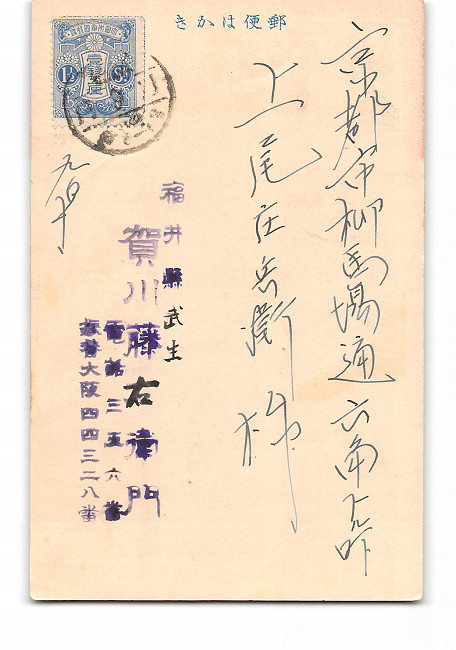 郵便はかき
京都市柳馬場通六角下ル
上尾庄兵衛様
福井縣武生
賀川藤右衛門
電話三五六番
振替大阪四四三二八番
1½ Sn